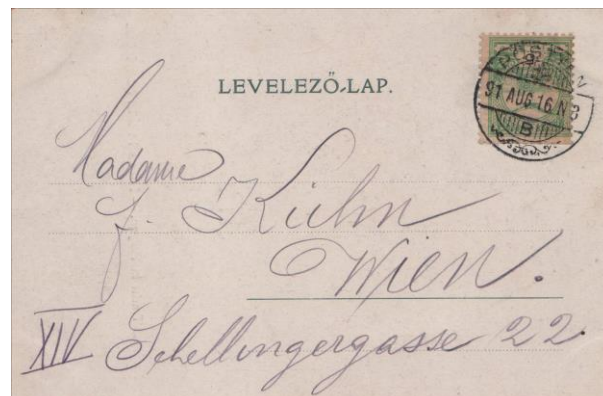 LEVELEZŐ-LAP.
91 AUG 16 N
B
Madame
J. Kuhn
Wien.
XIV Schellingergasse 22.